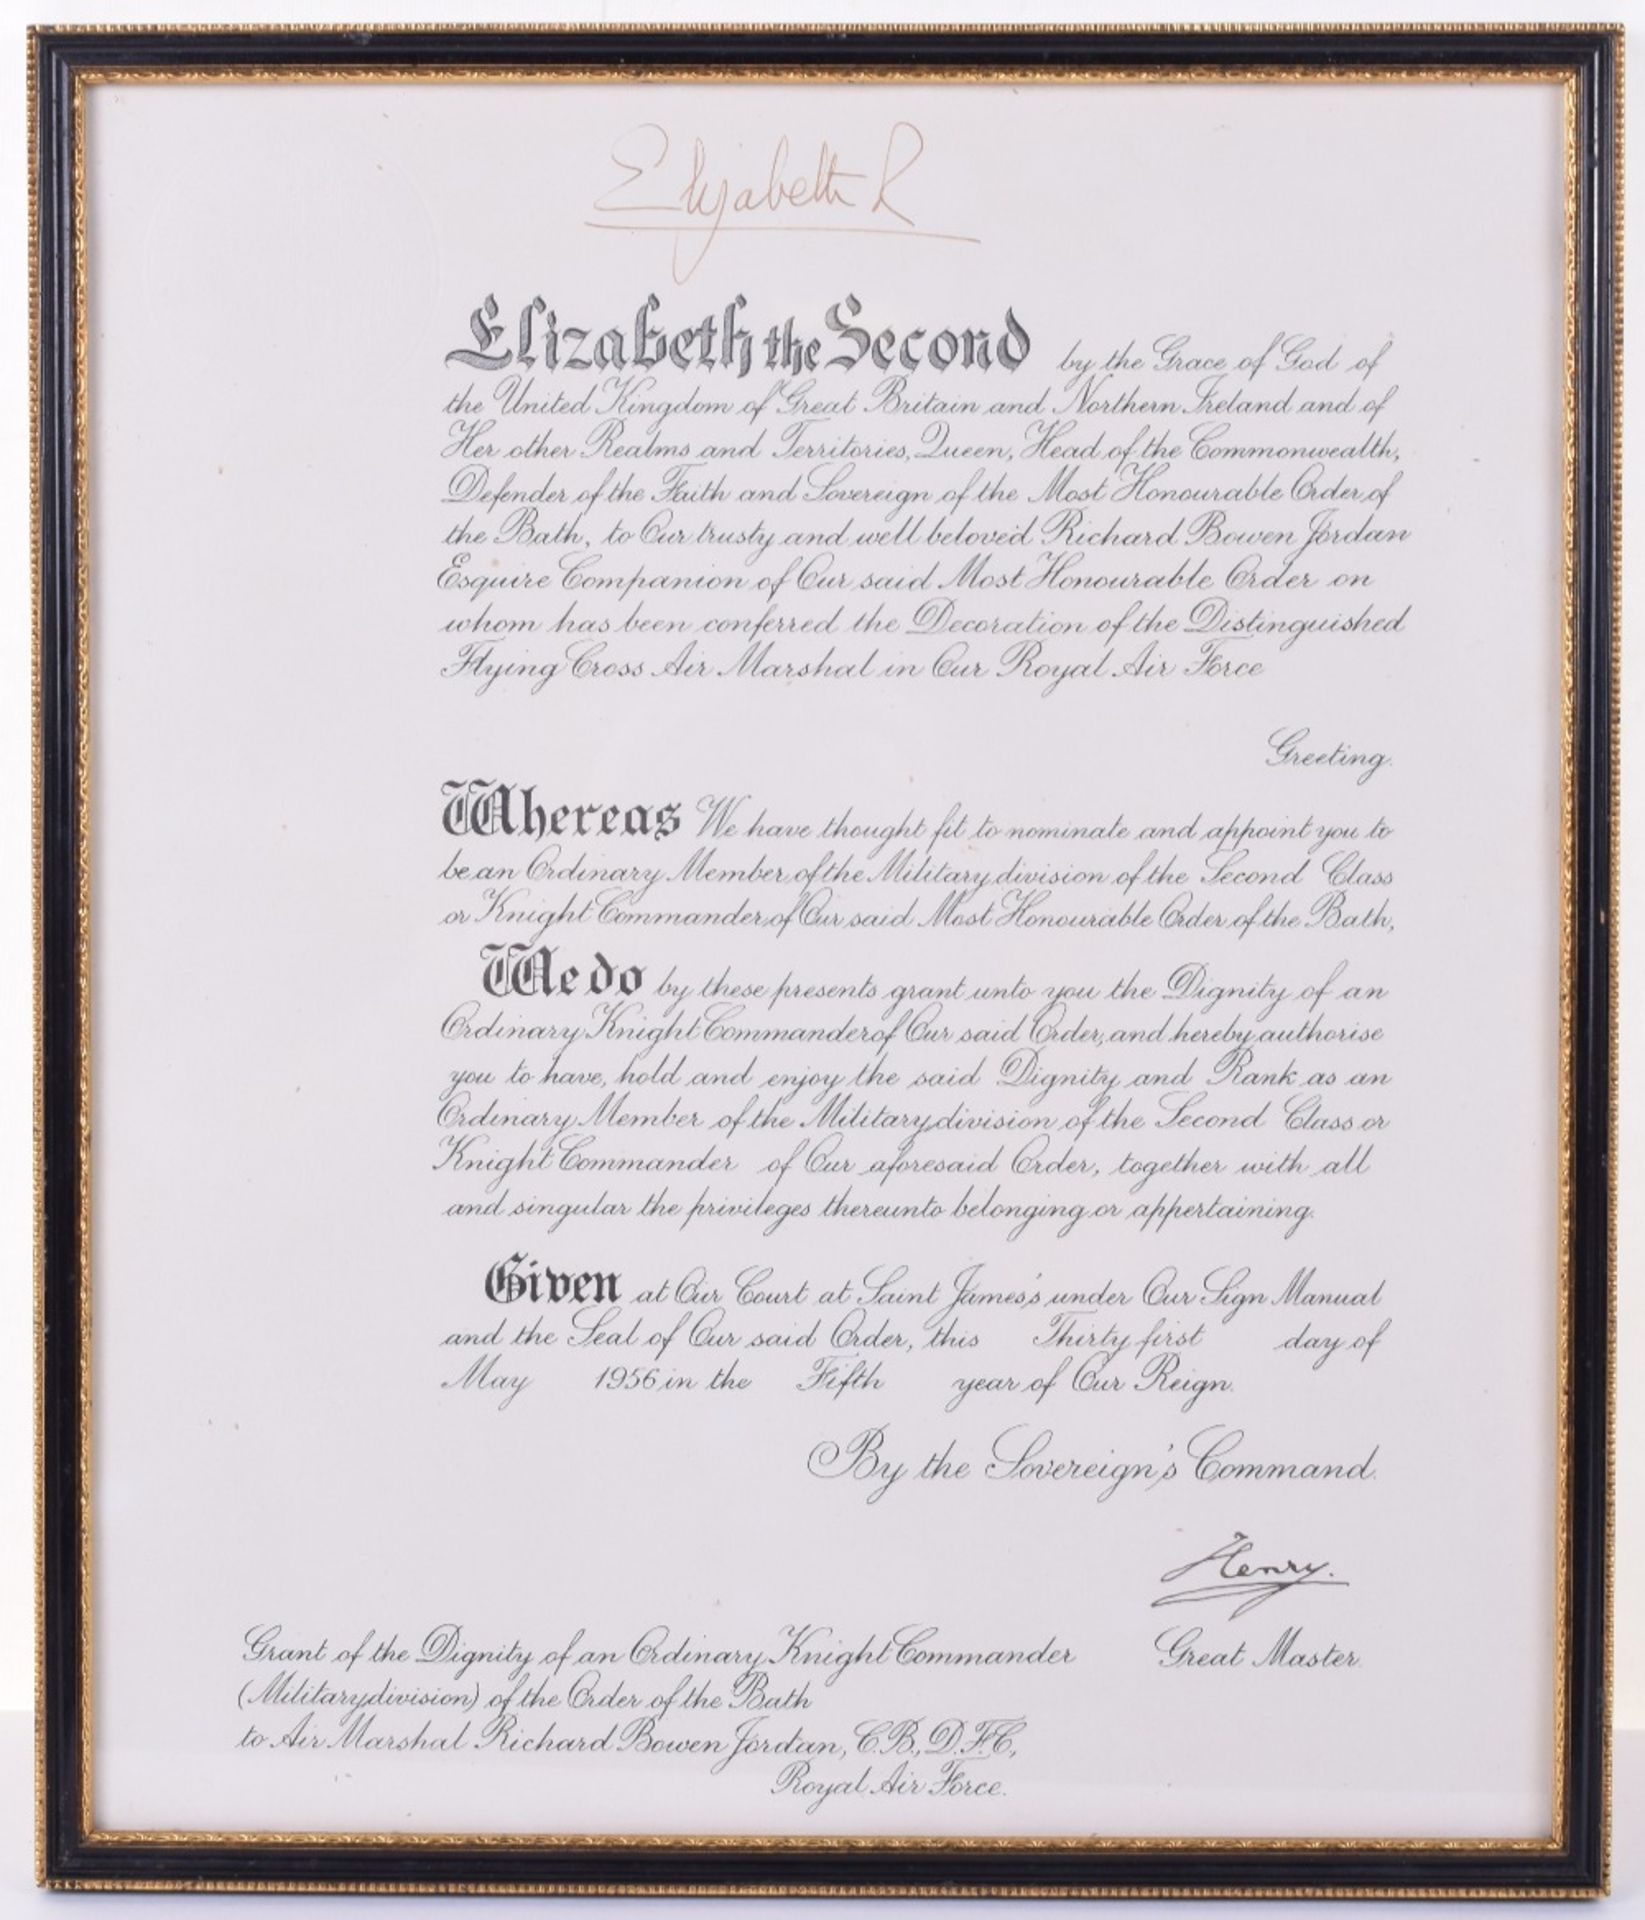 Elizabeth R
Elizabeth the Second by the Grace of God of
the United Kingdom of Great Britain and Northern Ireland and of
Her other Realms and Territories, Queen, Head of the Commonwealth,
Defender of the Faith and Sovereign of the Most Honourable Order of
the Bath, to Our trusty and well beloved Richard Bowen Jordan
Esquire Companion of Our said Most Honourable Order on
whom has been conferred the Decoration of the Distinguished
Flying Cross Air Marshal in Our Royal Air Force
Greeting.
Whereas We have thought fit to nominate and appoint you to
be an Ordinary Member of the Military division of the Second Class
or Knight Commander of Our said Most Honourable Order of the Bath,
We do by these presents grant unto you the Dignity of an
Ordinary Knight Commander of Our said Order, and hereby authorise
you to have, hold and enjoy the said Dignity and Rank as an
Ordinary Member of the Military division of the Second Class or
Knight Commander of Our aforesaid Order, together with all
and singular the privileges thereunto belonging or appertaining.
Given at Our Court at Saint James's under Our Sign Manual
and the Seal of Our said Order, this Thirty first day of
May 1956 in the Fifth year of Our Reign.
By the Sovereign's Command.
Henry.
Great Master.
Grant of the Dignity of an Ordinary Knight Commander
(Military division) of the Order of the Bath
to Air Marshal Richard Bowen Jordan, C.B., D.F.C.,
Royal Air Force.